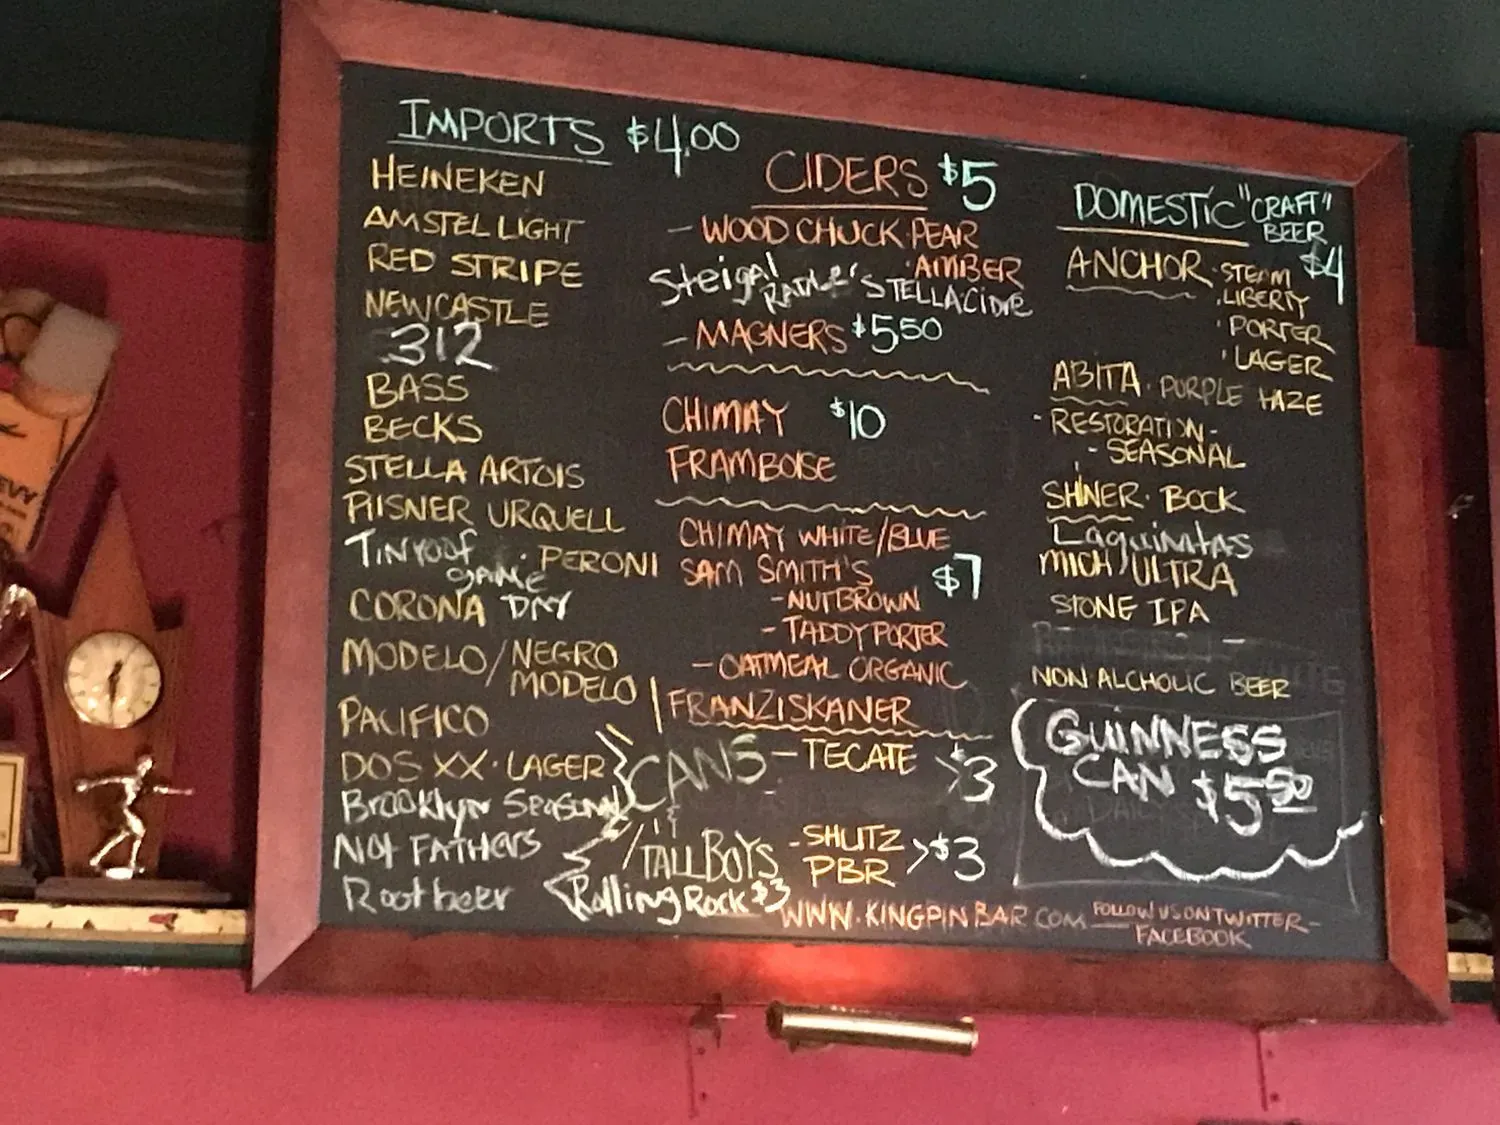 IMPORTS $4.00
HEINEKEN
AMSTEL LIGHT
RED STRIPE
NEWCASTLE
312
BASS
BECKS
STELLA ARTOIS
PILSNER URQUELL
Tinroof · PERONI
game
CORONA DAY
MODELO/NEGRO
MODELO
PACIFICO
DOS XX · LAGER
Brooklyn Seasonal
Not FATHERS
Root beer
CIDERS $5
- WOOD CHUCK · PEAR
· AMBER
Steigal
STELLA Cidre
- MAGNERS $5.50
CHIMAY $10
FRAMBOISE
CHIMAY WHITE/BLUE
SAM SMITH'S $7
- NUTBROWN
- TADDY PORTER
- OATMEAL ORGANIC
FRANZISKANER
CANS - TECATE > $3
&
TALL BOYS - SHLITZ
PBR > $3
Rolling Rock $3
DOMESTIC "CRAFT"
BEER
$4
ANCHOR · STEAM
· LIBERTY
· PORTER
· LAGER
ABITA · PURPLE HAZE
- RESTORATION -
- SEASONAL
SHINER · BOCK
Laquinitas
MICH/ULTRA
STONE IPA
NON ALCHOLIC BEER
GUINNESS
CAN $5.50
WWW.KINGPINBAR.COM
FOLLOW US ON TWITTER -
FACEBOOK
EVY